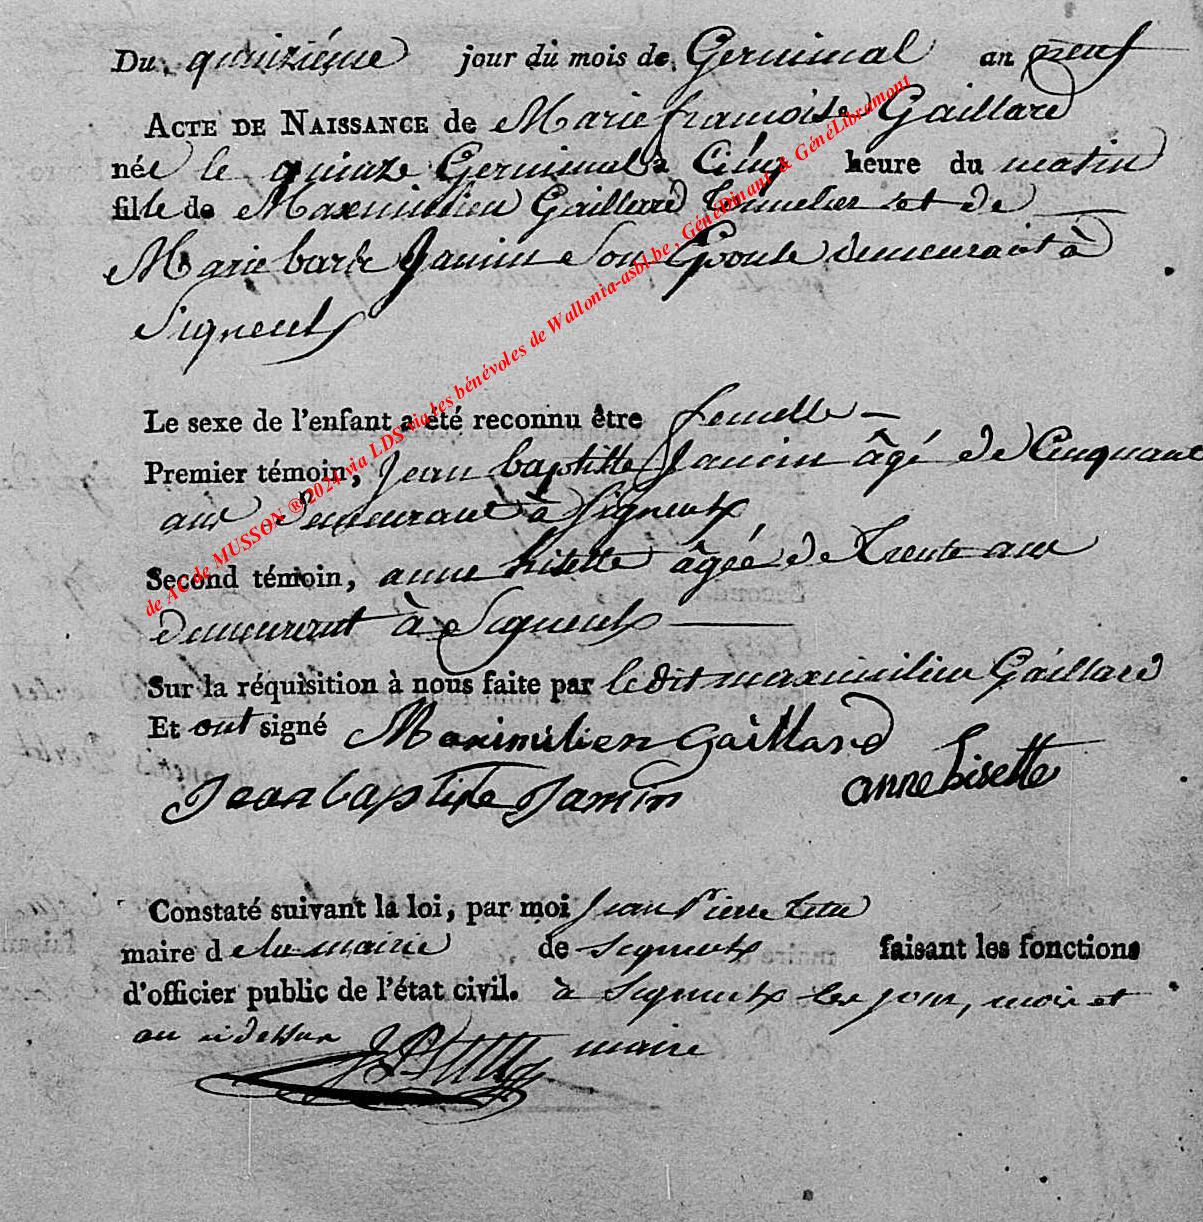 Du quinziéme jour du mois de Germinal an neuf
ACTE DE NAISSANCE de Marie françoise Gaillard
née le quinze Germinal a Cinq heure du matin
fille de Maximilien Gaillard et de
Marie barbe Jamin Son Epouse demeurant à
Signeulx
Le sexe de l'enfant a été reconnu être femelle
Premier témoin, Jean baptiste Jamin âgé de Cinquante
ans demeurant à Signeulx
Second témoin, anne bisette âgée de trente ans
demeurant à Signeulx
Sur la réquisition à nous faite par ledit maximilien Gaillard
Et ont signé Maximilien Gaillard
Jean baptiste Jamin anne bisette
Constaté suivant la loi, par moi Jean Pierre
maire de la mairie de Signeulx faisant les fonctions
d'officier public de l'état civil. à Signeulx les jour, mois et
an ci dessus maire
de AC de MUSSON ® 2024 via LDS via les bénévoles de Wallonia-asbl.be, GénéDinant & GénéLibramont